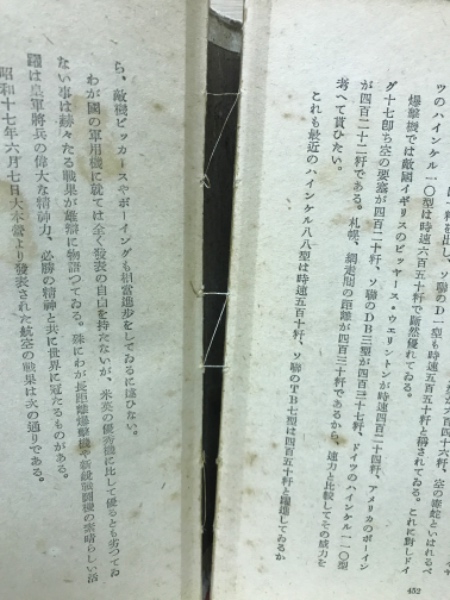 ツのハインケル一〇型は時速六百五十粁で斷然優れてゐる。これに對しドイ
爆撃機では敵國イギリスのビッヤース・ウエリントンが時速四百二十四粁、アメリカのボーイン
グ十七卽ち空の要塞が四百二十粁、ソ聯のDB三型が四百三十七粁、ドイツのハインケル一一〇型
が四百二十二粁である。札幌、網走間の距離が四百三十粁であるから、速力と比較してその威力を
考へて貰ひたい。
これも最近のハインケル八八型は時速五百十粁、ソ聯のTB七型は四百五十粁と躍進してゐるか
452
ら、敵機ビッカースやボーイングも相當進歩をしてゐるに違ひない。
わが國の軍用機に就ては全く發表の自由を持たないが、米英の優秀機に比して優るとも劣つてゐ
ない事は赫々たる戰果が雄辯に物語つてゐる。殊にわが長距離爆撃機や新鋭戰鬪機の素晴らしい活
躍は皇軍將兵の偉大な精神力、必勝の精神と共に世界に冠たるものがある。
昭和十七年六月七日大本營より發表された航空の戰果は次の通りである。